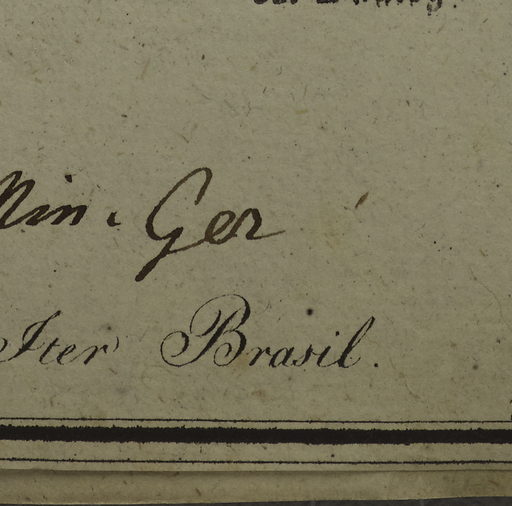 Min. Ger
Iter Brasil.